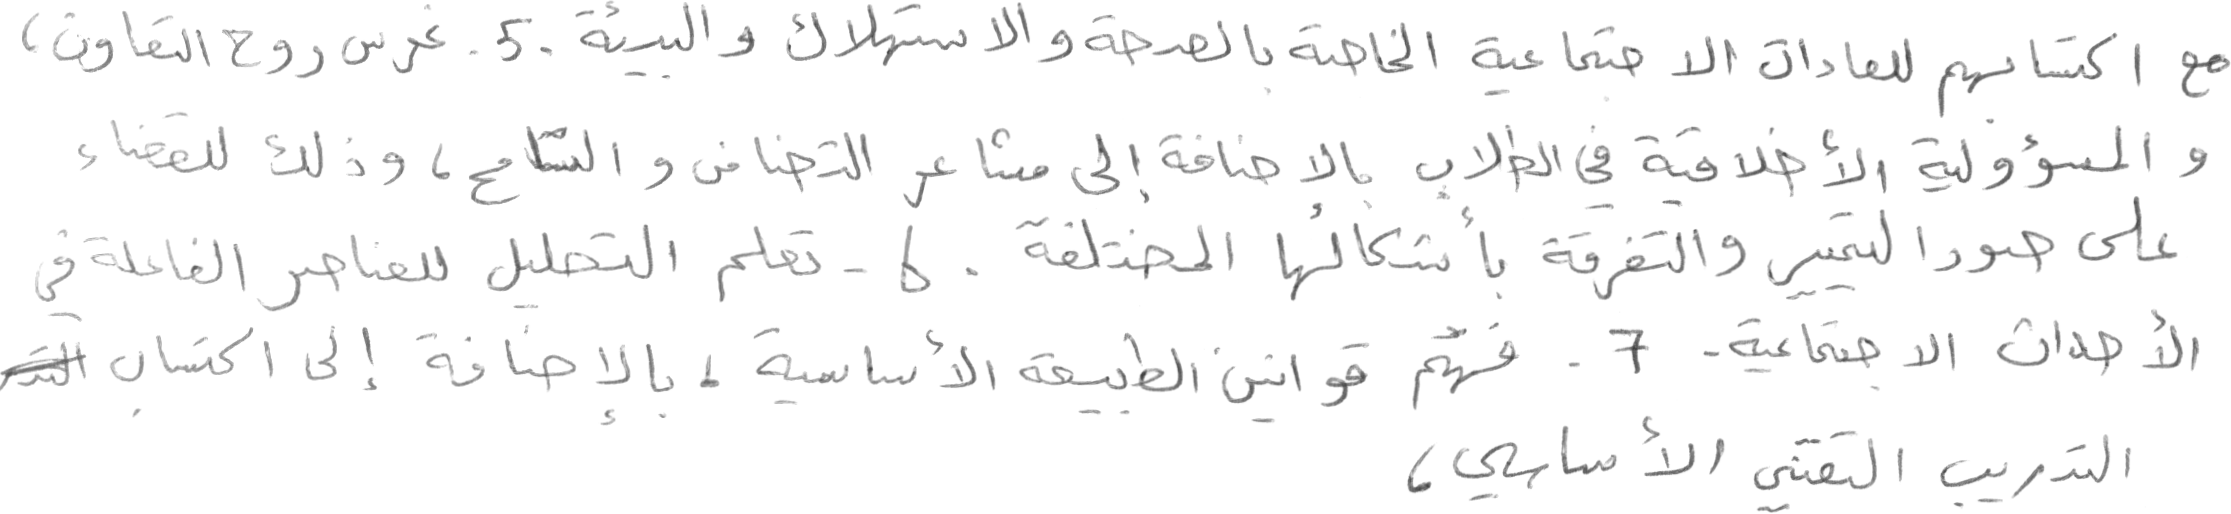 مع اكتسابهم للعادات الاجتماعية الخاصة بالصحة والاستهلاك والبيئة .5. غرس روح التعاون،
والمسؤولية الأخلاقية في الطلاب بالإضافة إلى مشاعر التضامن والتسامح، وذلك للقضاء
على صور التمييز والتفرقة بأشكالها المختلفة . 6 - تعلم التحليل للعناصر الفاعلة في
الأحداث الاجتماعية - 7 . فهّم قوانين الطبيعة الأساسية، بالإضافة إلى اكتساب
التدريب التقني الأساسي،